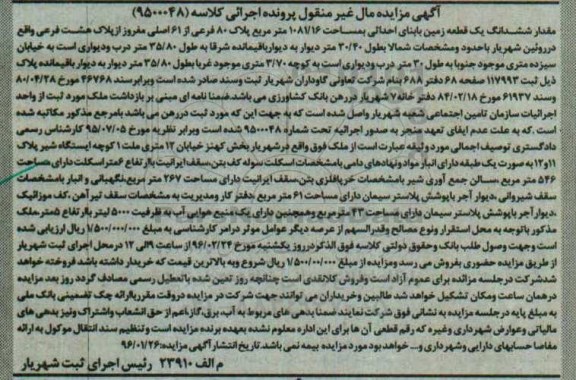 آگهی مزایده مال غیر منقول پرونده اجرائی کلاسه (۹۵۰۰۰۴۸)
مقدار ششدانگ یک قطعه زمین بابنای احداثی بمساحت ۱۰۸۱/۱۶ متر مربع پلاک ۸۰ فرعی از ۶۱ اصلی مفروز از پلاک هشت فرعی واقع
در روئین شهریار باحدود ومشخصات شمالا بطول ۳۰/۴۰ متر دیوار به دیوار باقیمانده شرقا به طول ۳۵/۸۰ متر درب ودیواری است به خیابان
سیزده متری موجود جنوبا به طول ۳۰ متر درب ودیواری است به کوچه ۳/۷۰ متری موجود غربا بطول ۳۵/۸۰ متر دیوار به دیوار باقیمانده پلاک
ذیل ثبت ۱۱۷۹۹۳ صفحه ۶۸ دفتر ۶۸۸ بنام شرکت تعاونی گاوداران شهریار ثبت وسند صادر شده است وبرابر سند ۴۶۷۶۸ مورخ ۸۰/۰۴/۲۸
وسند ۶۱۹۳۷ مورخ ۸۴/۰۲/۱۸ دفتر خانه ۷ شهریار در رهن بانک کشاورزی می باشد.ضمنا نامه ای مبنی بر بازداشت ملک مورد ثبت از واحد
اجرائیات سازمان تامین اجتماعی شعبه شهریار واصل شده است که به جهت این که مورد ثبت در رهن می باشد بامرجع مذکور مکاتبه شده
است .که به علت عدم ایفای تعهد منجر به صدور اجرائیه تحت شماره ۹۵۰۰۰۴۸ شده است وبرابر نظریه مورخ ۹۵/۰۷/۰۵ کارشناس رسمی
دادگستری توصیف اجمالی مورد وثیقه عبارت است از ملک فوق واقع در شهریار بخش کهنز خیابان ۱۲ متری ملت ۱ کوچه ایستگاه شیر پلاک
۱۱و۱۲ به صورت یک طبقه دارای انبار مواد ونهاده های دامی بامشخصات اسکلت،سوله کف بتن،سقف ایرانیت باارتفاع ۶متر اسکلت دارای مساحت
۵۴۶ متر مربع ،سالن جمع آوری شیر بامشخصات خرپافلزی بتن،سقف ایرانیت دارای مساحت ۲۶۷ متر مربع،نگهبانی و انبار بامشخصات
سقف شیروانی ،دیوار آجر باپوشش پلاستر سیمان دارای مساحت ۶۱ متر مربع ،دفتر کار ومدیریت به مشخصات سقف تیرآهن ،کف موزائیک
،دیوار آجر باپوشش پلاستر سیمان دارای مساحت ۴۳ متر مربع وهمچنین دارای یک منبع هوایی آب به ظرفیت ۵۰۰۰ لیتر باارتفاع ۵متر،ملک
مذکور باتوجه به محل استقرار ونوع مصالح وقدرالسهم از عرصه دیگر عوامل موثر در امر کارشناسی به مبلغ ۱/۵۰۰/۰۰۰/۰۰۰ ریال ارزیابی شده
است وجهت وصول طلب بانک وحقوق دولتی کلاسه فوق الذکر در روز یکشنبه مورخ ۹۶/۰۲/۲۴ از ساعت ۹ الی ۱۲ در محل اجرای ثبت شهریار
از طریق مزایده حضوری بفروش می رسد ومزایده از مبلغ ۱/۵۰۰/۰۰/۰۰۰ ریال شروع وبه بالاترین قیمت که خریدار داشته باشد فروخته خواهد
شد شرکت در جلسه مزائده برای عموم آزاد است وفروش کلانقدی است چنانچه روز تعیین شده باتعطیل رسمی مصادف گردد روز بعد مزایده
در همان ساعت ومکان تشکیل خواهد شد طالبین وخریداران می توانند جهت شرکت در مزایده در وقت مقرر باارائه چک تضمینی بانک ملی
به مبلغ پایه در جلسه مزایده به نشانی فوق شرکت نمایند ضمنا بدهی های مربوط به آب،برق،گاز اعم از حق انشعاب واشتراک ونیز بدهی های
مالیاتی وعوارض شهرداری وغیره که رقم قطعی آن ها برای این اداره معلوم نشده بعهده برنده مزایده است وتنظیم سند انتقال موکول به ارائه
مفاصا حسابهای دارایی وشهرداری و... خواهد بود مورد مزایده بیمه نمی باشد.تاریخ انتشار آگهی مزایده:۹۶/۰۱/۲۶
م الف ۲۳۹۱۰ رئیس اجرای ثبت شهریار